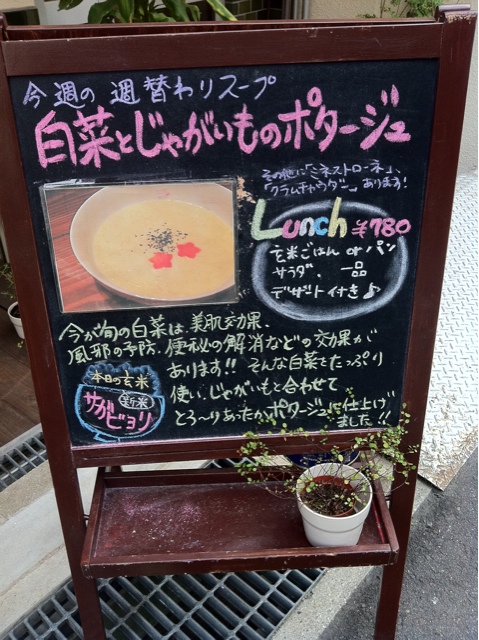 今週の 週替わりスープ
白菜とじゃがいものポタージュ
その他に「ミネストローネ」、
「クラムチャウダー」あります!
Lunch ¥780
玄米ごはん or パン
サラダ、一品
デザート付き♪
今が旬の白菜は、美肌効果、
風邪の予防、便秘の解消などの効果が
あります!! そんな白菜をたっぷり
使い、じゃがいもと合わせて
とろ〜りあったかポタージュに仕上げ
ました!!
本日の玄米
新米
サガビヨリ